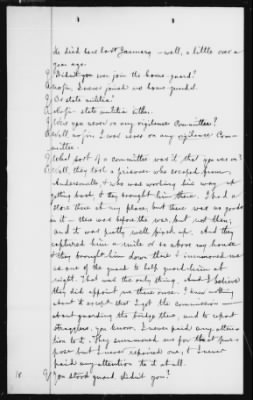 He died here last January – well, a little over a
year ago.
Q Didn't you ever join the home guard?
A No sir, I never joined no home guard.
Q Or state militia?
A No sir state militia either.
Q Were you never on any vigilance Committee?
A Well no sir I was never on any vigilance Com-
mittee.
Q What sort of a committee was it that you were on?
A Well, they took a prisoner who escaped from
Andersonville, & who was working his way
back, & they brought him there. I had a
store there at my place, but there was no goods
in it – this was before the war, but not then;
and it was pretty well fixed up. And they
captured him a mile or so above my house
& they brought him down there & summoned me
as one of the guard to help guard him at
night. That was the only thing. And I believe
they did appoint me there once. I knew nothing
about it except that I got the commission —
about guarding the bridge there, and to report
stragglers, you know. I never paid any atten-
tion to it. They summoned me for that pur-
pose but I never repaired one, & I never
paid any attention to it at all.
Q You stood guard, didn't you?